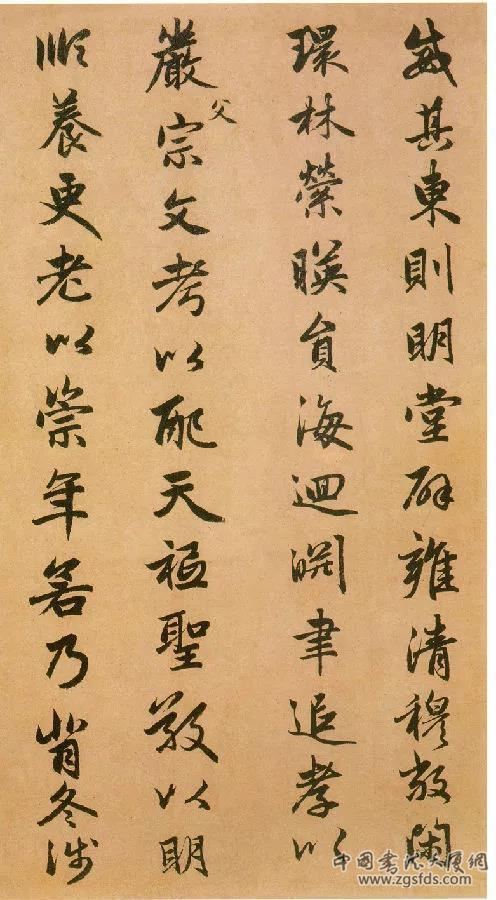 威其東則明堂辟雍清穆敞閑
環林縈暎員海迴淵聿追孝以
嚴父宗文考以配天祗聖敬以明
順養更老以崇年若乃背冬涉
中国书法大厦网
www.zgsfds.com